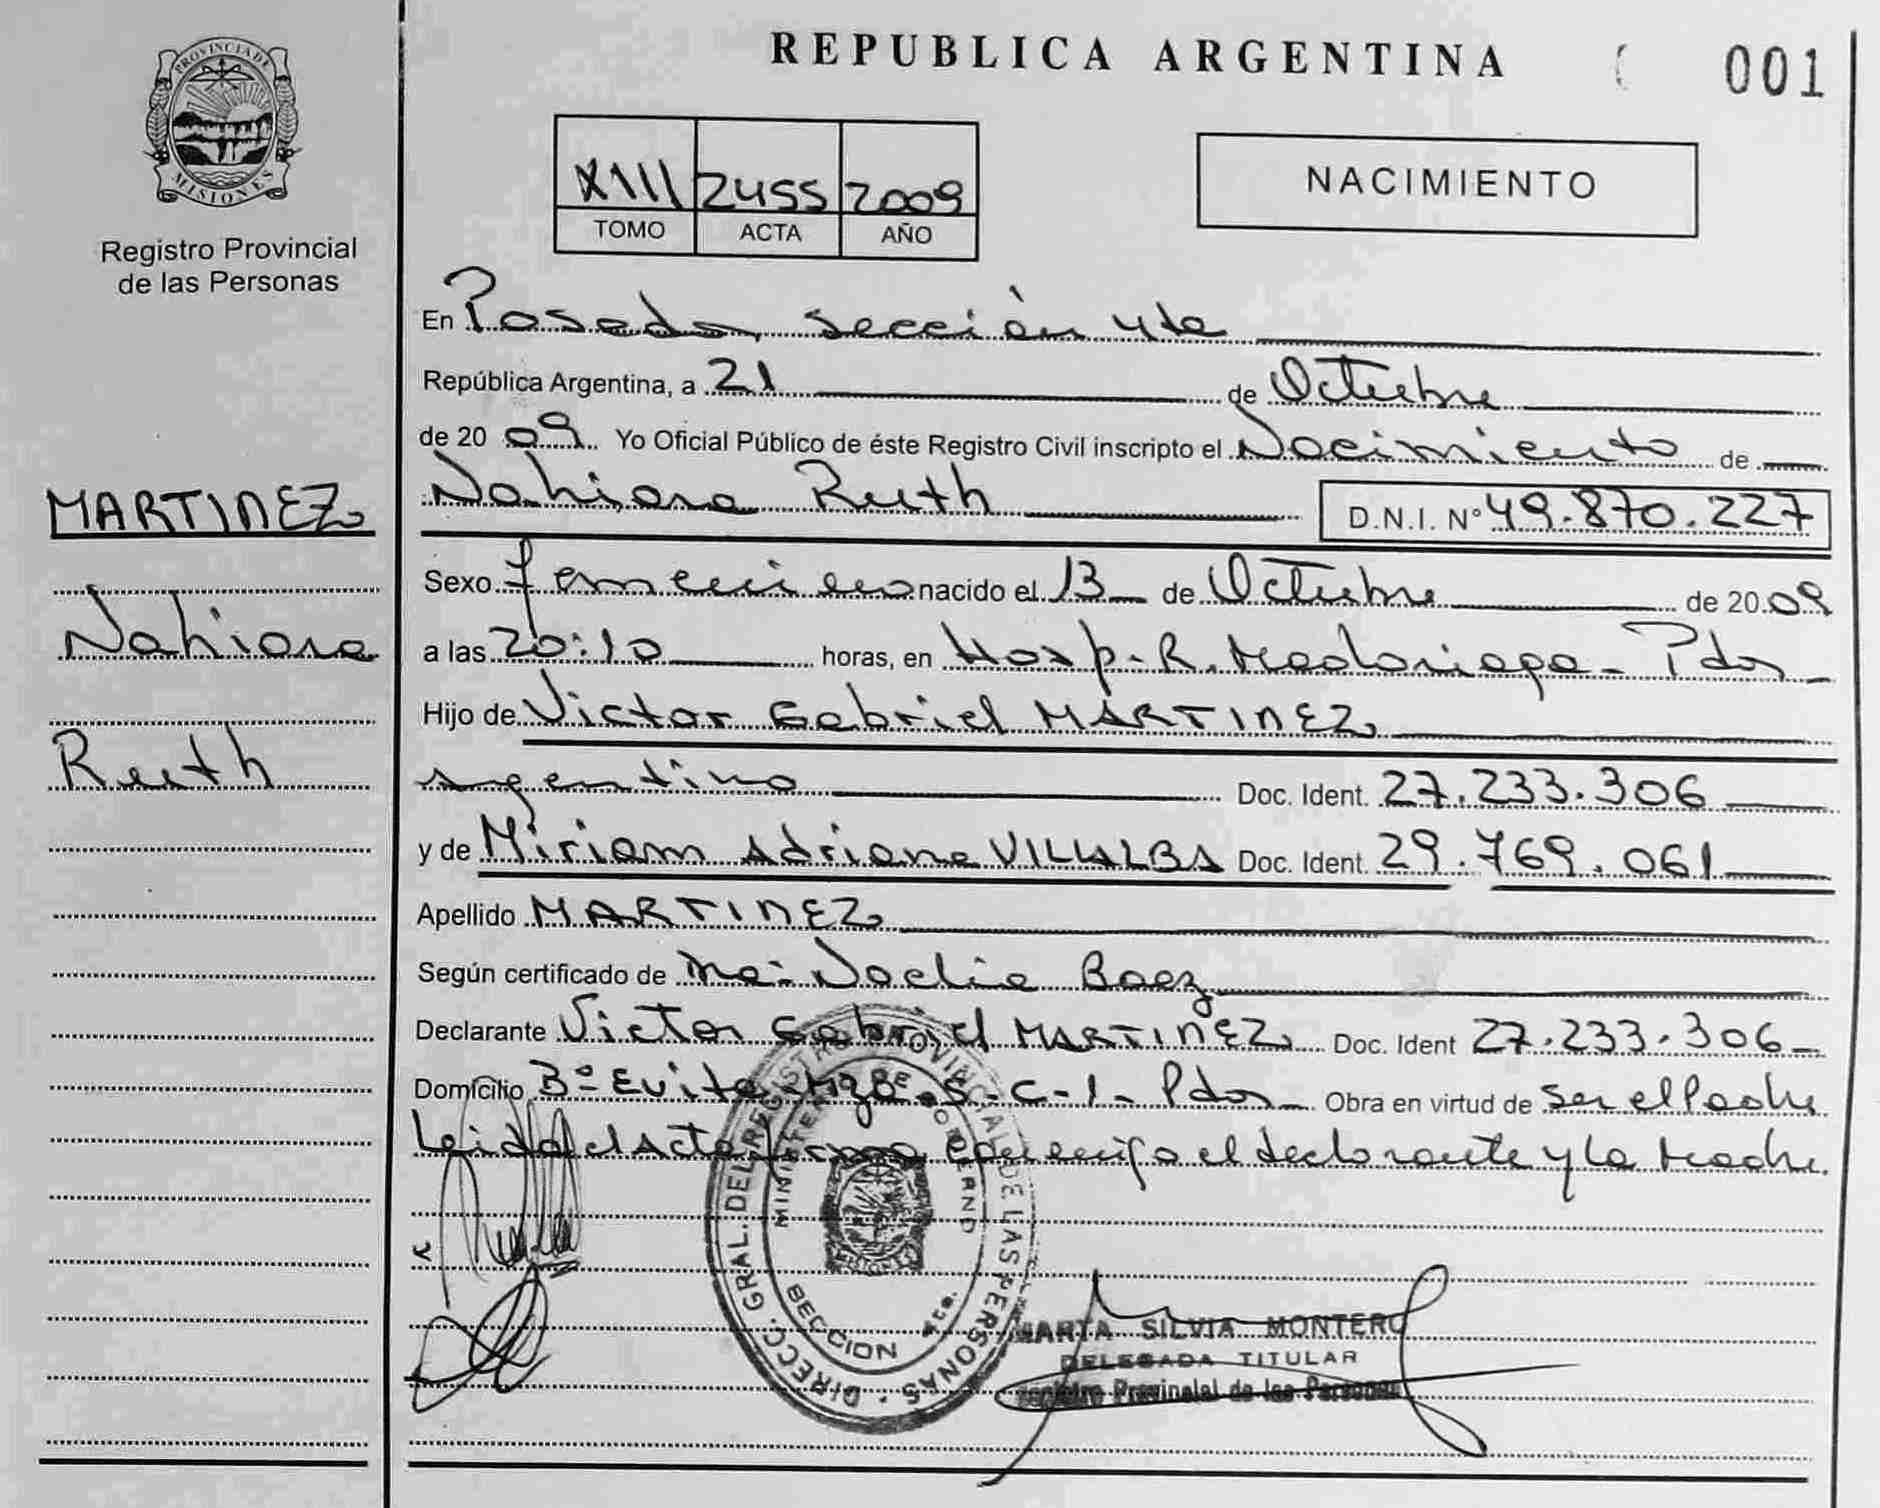 PROVINCIA DE
MISIONES
Registro Provincial
de las Personas
MARTINEZ
Nahiara
Ruth
REPUBLICA ARGENTINA
001
XIII 2455 2009
TOMO ACTA AÑO
NACIMIENTO
En Posadas, Sección 4ta
República Argentina, a 21 de Octubre
de 20 09 Yo Oficial Público de éste Registro Civil inscripto el Nacimiento de
Nahiara Ruth D.N.I. Nº 49.870.227
Sexo femenino nacido el 13 de Octubre de 20 09
a las 20:10 horas, en Hosp. R. Madariaga - Pdas
Hijo de Victor Gabriel MARTINEZ
argentino Doc. Ident. 27.233.306
y de Miriam Adriana VILLALBA Doc. Ident. 29.769.061
Apellido MARTINEZ
Según certificado de Noelia Baez
Declarante Victor Gabriel MARTINEZ Doc. Ident 27.233.306
Domicilio Bº Evita Mza S - C-1 - Pdas Obra en virtud de Ser el Padre
Leida el Acta firma conmigo el declarante y la Madre
DIRECC. GRAL. DEL REGISTRO PROVINCIAL DE LAS PERSONAS
MINISTERIO DE GOBIERNO
SECCION 4ta.
MARTA SILVIA MONTERO
DELEGADA TITULAR
Registro Provincial de las Personas